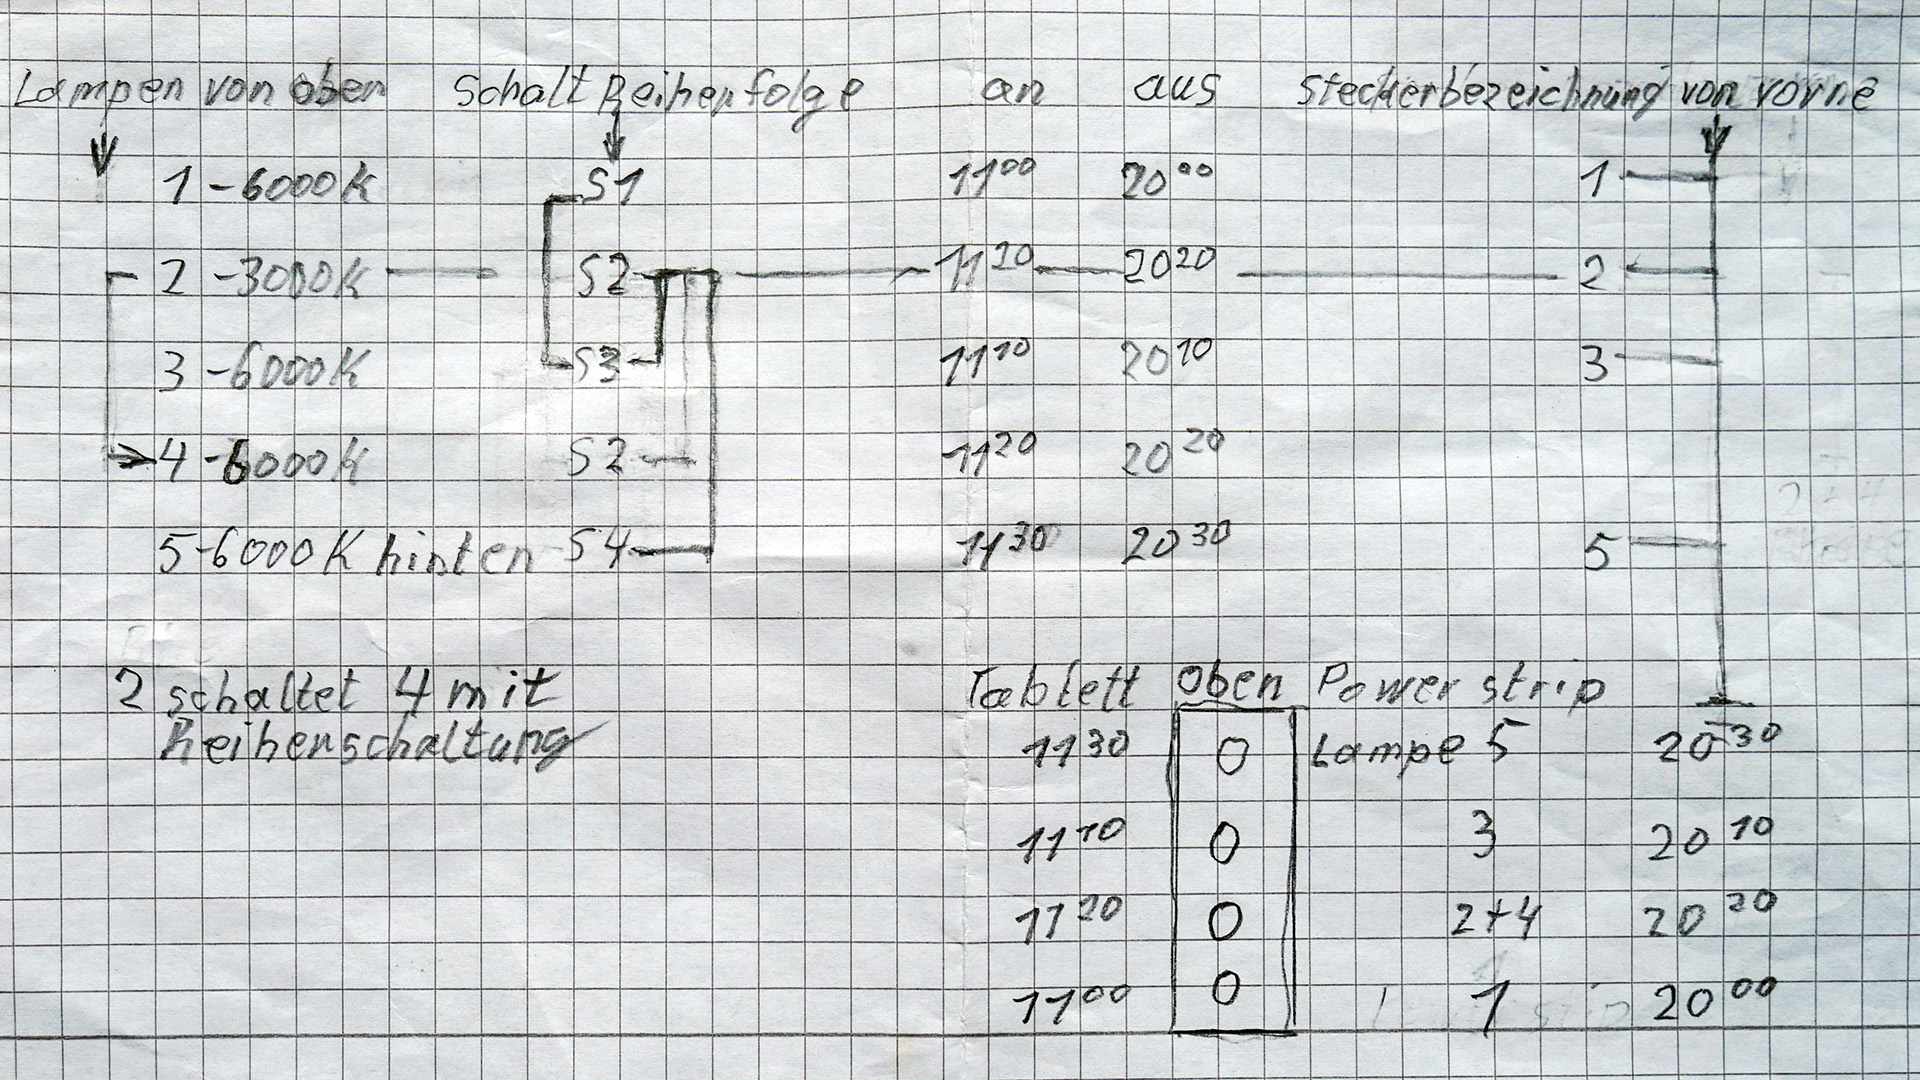 Lampen von oben Schalt Reihenfolge an aus Steckerbezeichnung von vorne
1 - 6000K S1 11⁰⁰ 20⁰⁰ 1
2 - 3000K S2 11²⁰ 20²⁰ 2
3 - 6000K S3 11¹⁰ 20¹⁰ 3
4 - 6000K S2 11²⁰ 20²⁰
5 - 6000K hinten S4 11³⁰ 20³⁰ 5
2 schaltet 4 mit
Reihenschaltung
Tablett oben Power strip
11³⁰ O Lampe 5 20³⁰
11¹⁰ O 3 20¹⁰
11²⁰ O 2+4 20²⁰
11⁰⁰ O 1 20⁰⁰